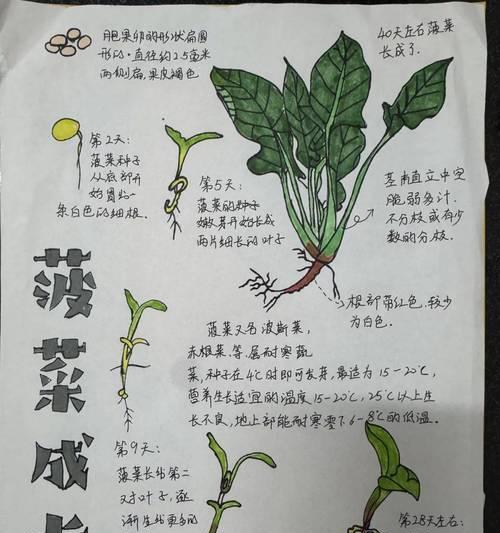 胞果卵的形状扁圆
形的·直径约2.5毫米
两侧扁,果皮褐色
40天左右菠菜
长成了.
第2天:
菠菜种子
从底部开
始冒出一
条白色的细根.
第5天:
菠菜的种子
嫩芽开始长成
两片细长的叶子
茎曲直立中空
脆弱多汁.
不分枝或有少
数的分枝.
根部带红色,较少
为白色.
菠菜又名波斯菜,
赤根菜.等.属耐寒蔬
菜,种子在4℃时即可发芽,最适为15-20℃,
营养生长适宜的温度15-20℃,25℃以上生
长不良,地上部能耐寒零下6-8℃的低温.
菠菜成长
第9天:
菠菜长出第二
对叶子,逐
渐生出更多的
第28天左右: